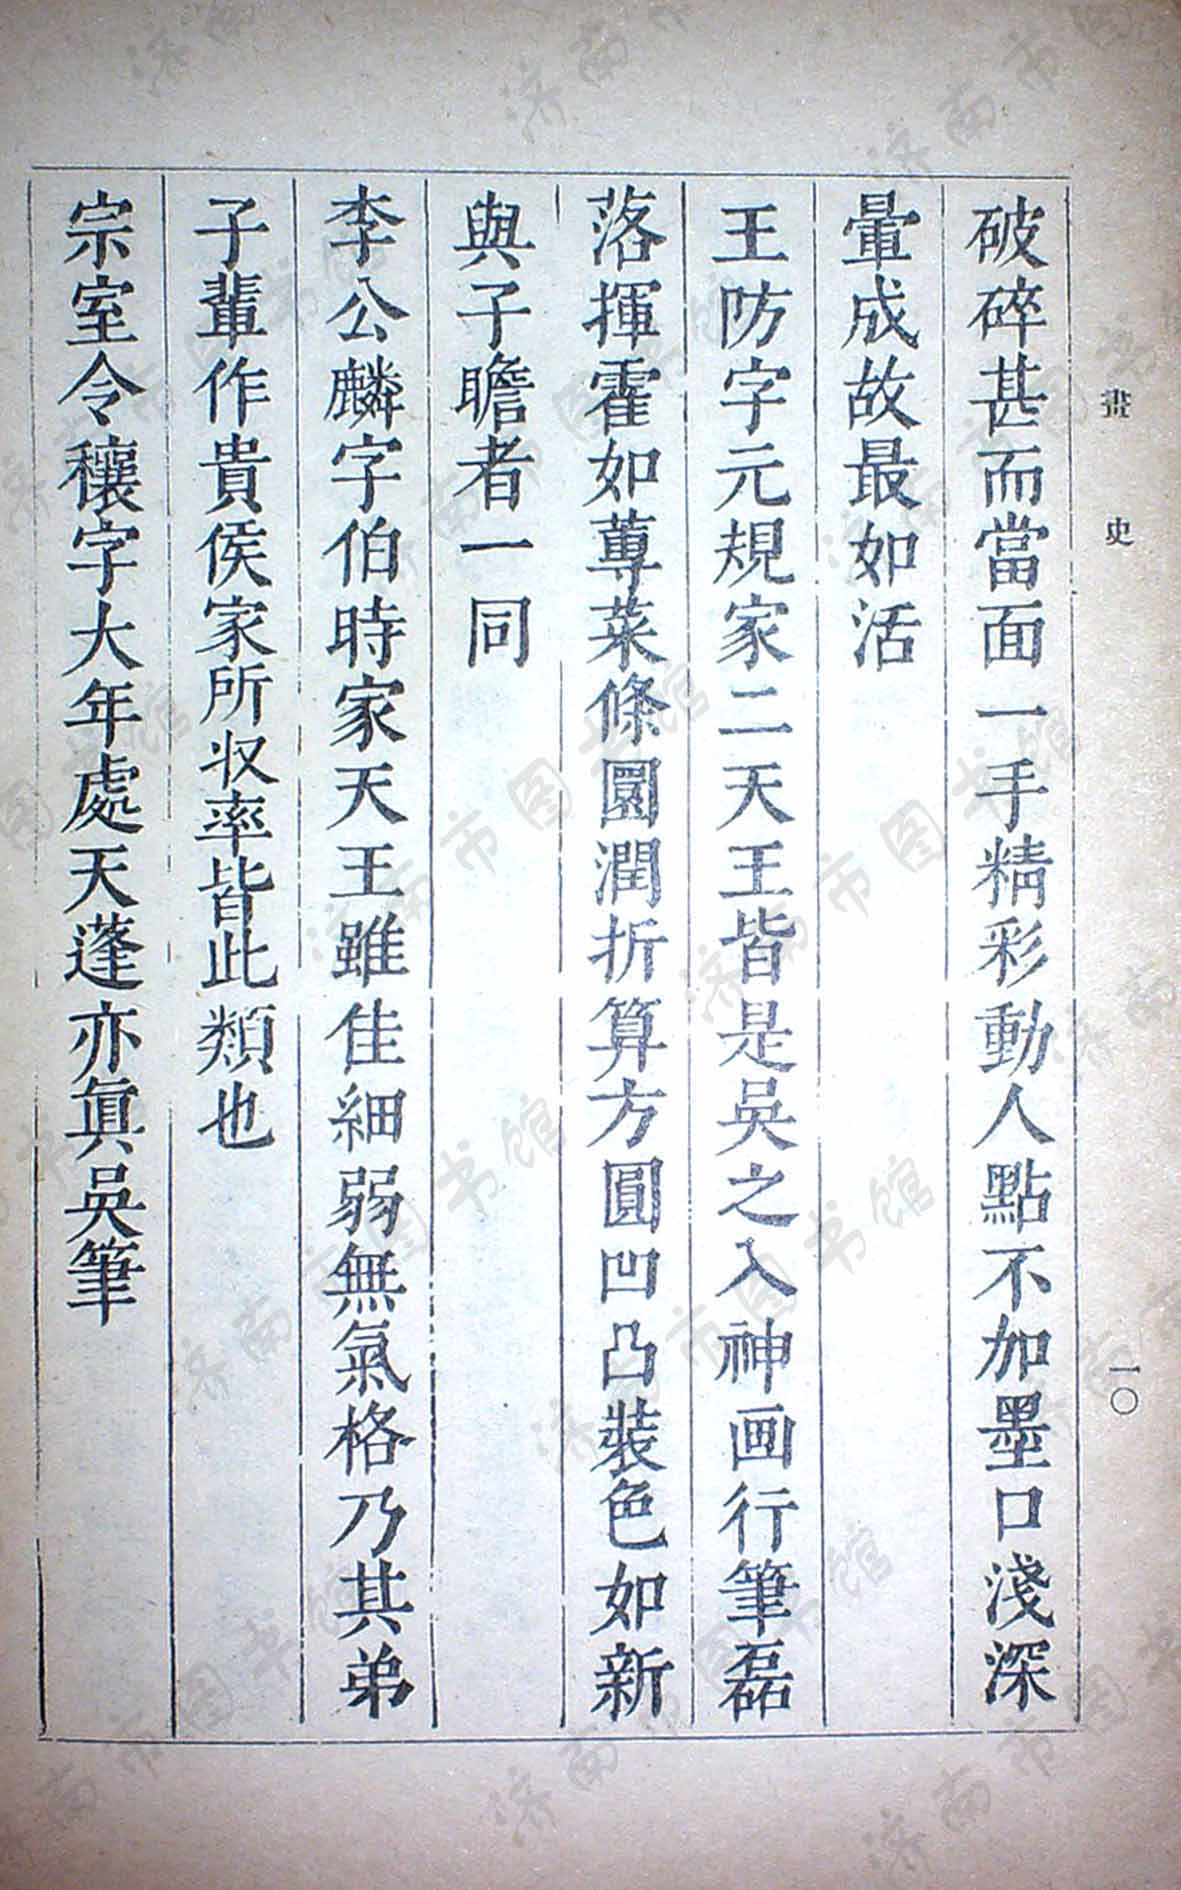 畫史
一〇
破碎甚而當面一手精彩動人點不加墨口淺深
暈成故最如活
王防字元規家二天王皆是吳之入神画行筆磊
落揮霍如蓴菜條圓潤折算方圓凹凸裝色如新
與子瞻者一同
李公麟字伯時家天王雖佳細弱無氣格乃其弟
子輩作貴侯家所収率皆此類也
宗室令穰字大年處天蓬亦真吳筆
济南市图书馆